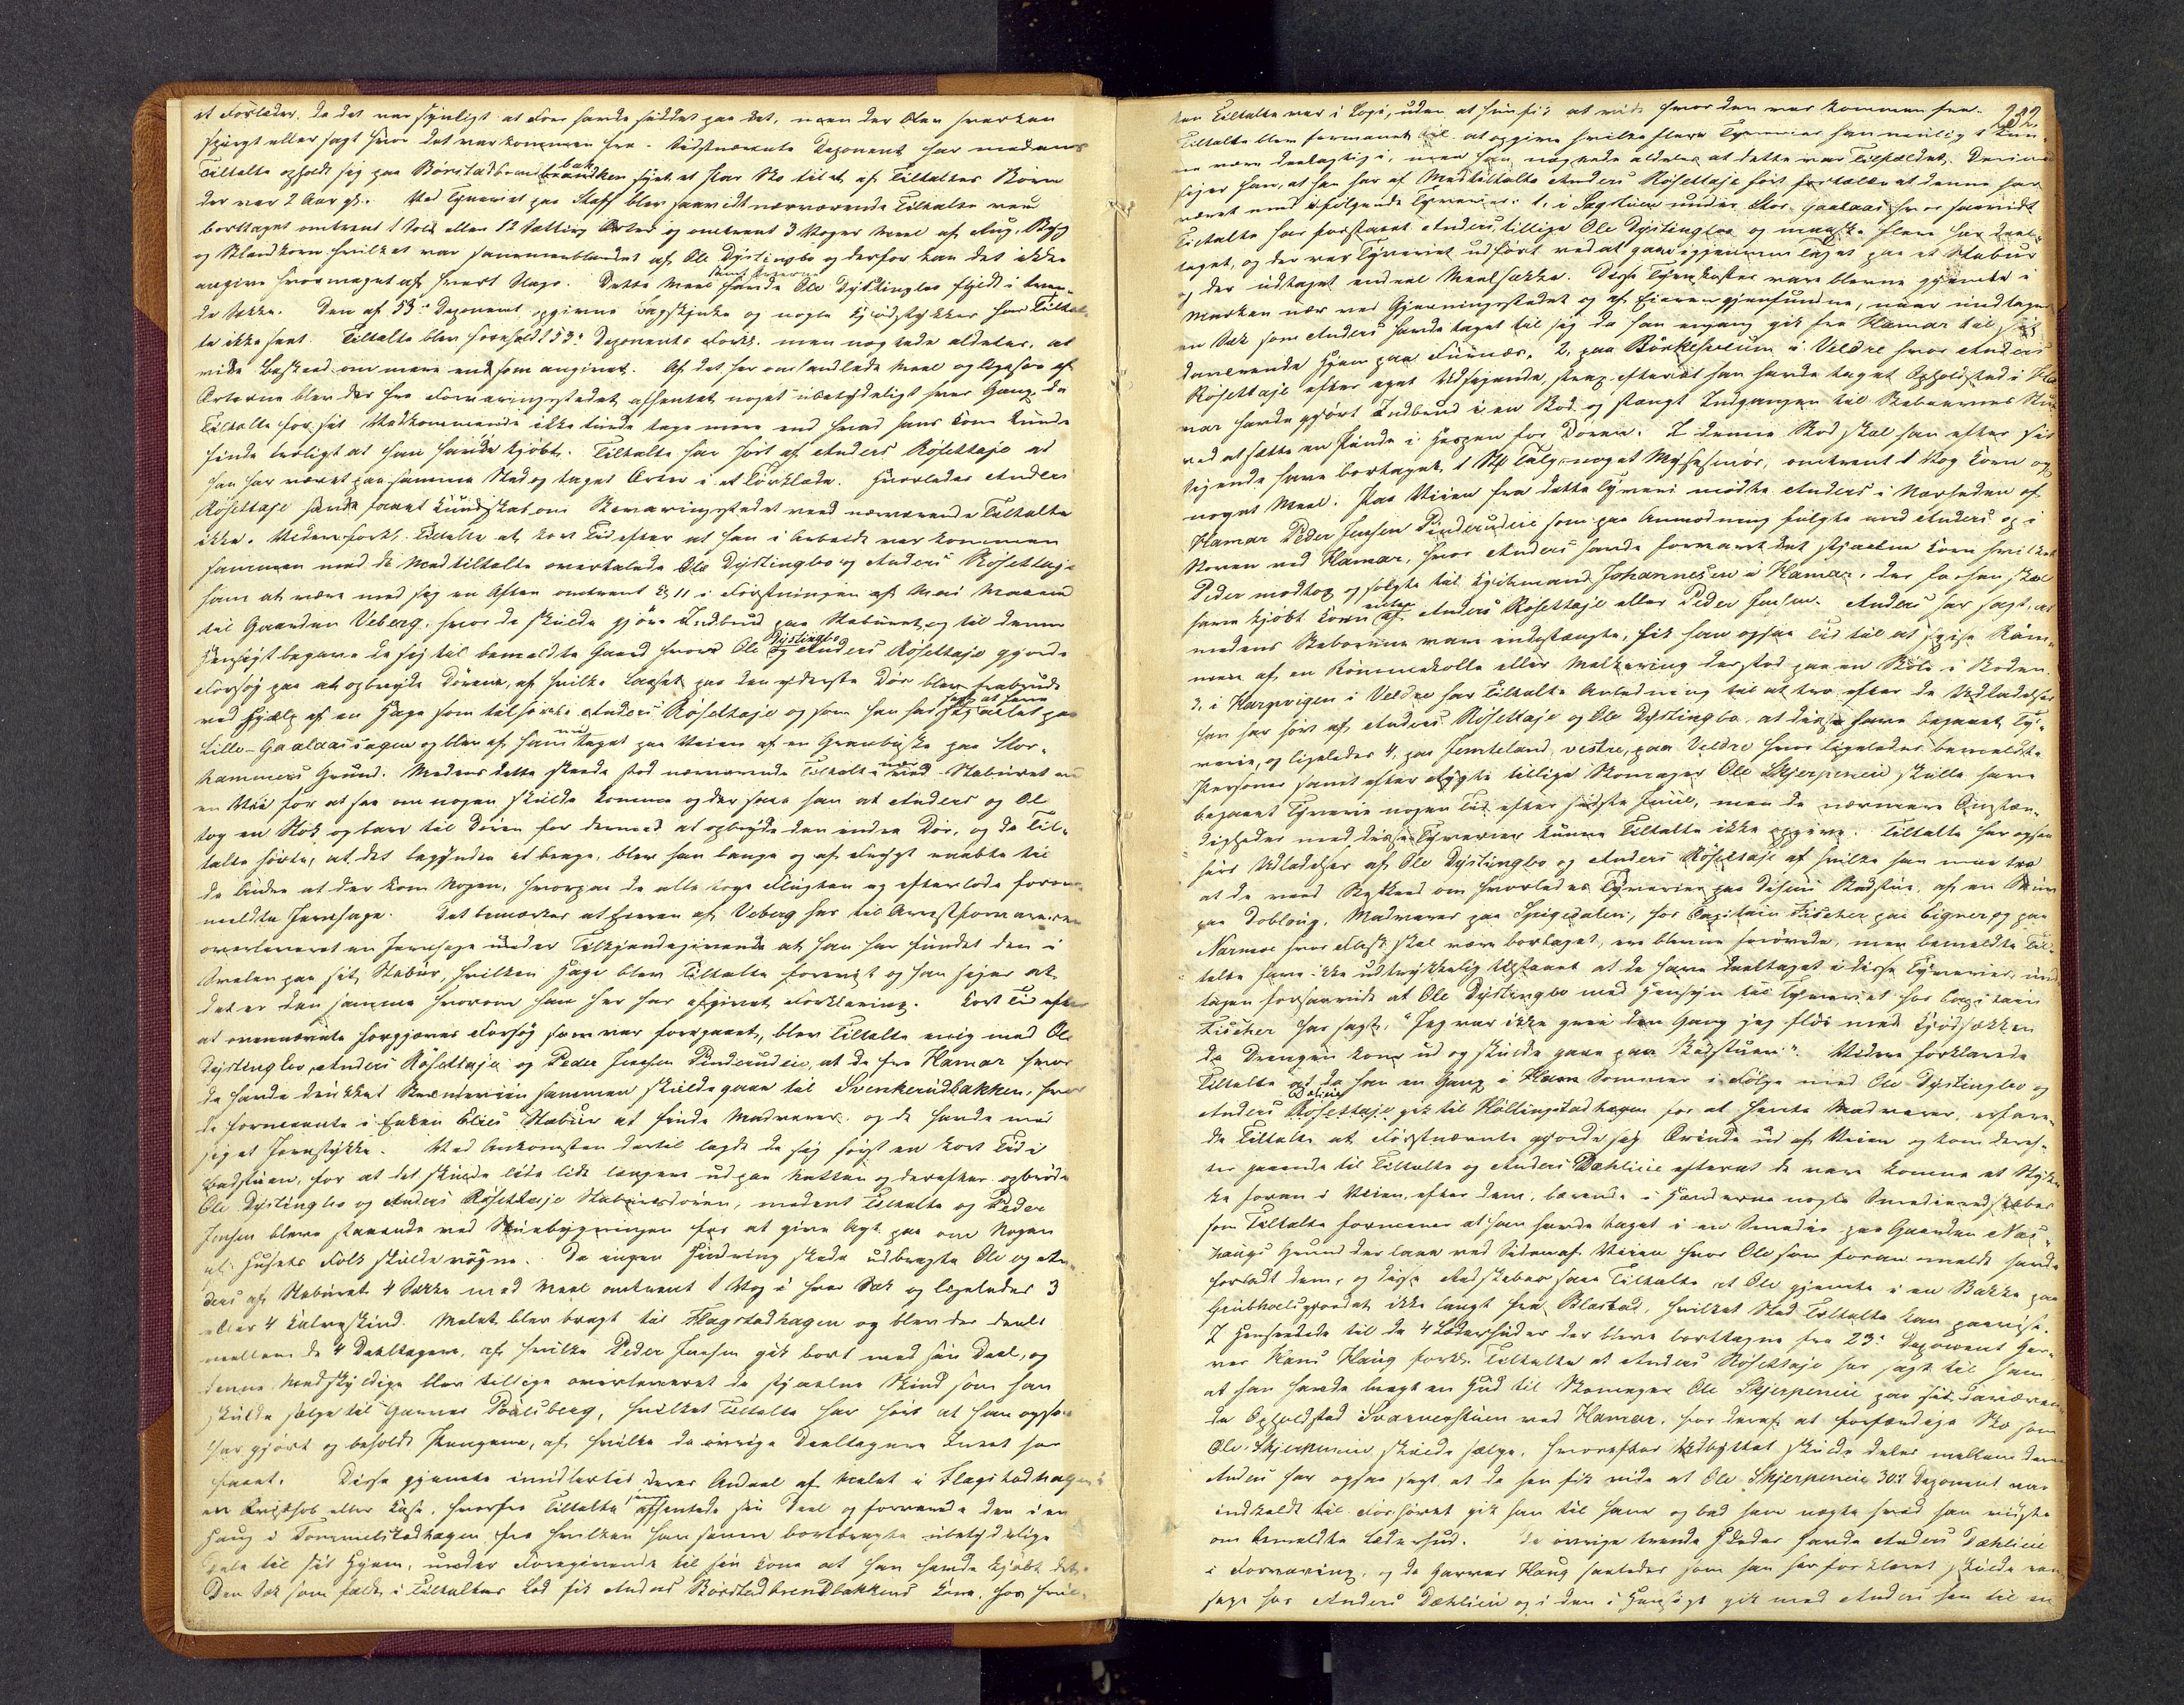 et Forklæde, da det var synligt at Foer havde siddet paa det, men der blev hverken
spurgt eller sagt hvor det var kommen fra. Sidstnævnte Deponent har medens
Tiltalte opholdt sig paa Børstadbrændbakken syet et Par Sko til et af Tiltaltes Børn
der var 2 Aar gl. Ved Tyveriet paa Skaff blev saavidt nærværende Tiltalte veed
borttaget omtrent 1 Told eller 12 Sætting Erter og omtrent 3 Voger Meel af Rug, Byg
og Blandkorn hvilket var sammenblandet af Ole Dystingbo og derfor kan det ikke
angives hvormeget af hvert Slags. Dette Meel samt Erterne havde Ole Dystingbo fyldt i tven-
de Sække. Den af 53de Deponent opgivne Bogskjinke og nogle Kjødstykker har Tiltal-
te ikke seet. Tiltalte blev foreholdt 53de Deponents Forkl. men nægtede aldeles, at
vide Beskeed om mere end som angivet. Af det her omhandlede Meel og ligesaa af
Erterne blev der fra Forvaringsstedet afhentet noget ubetydeligt hver Gang, da
Tiltalte for sit Vedkommende ikke turde tage mere end hvad hans Kone kunde
finde troligt at han havde kjøbt. Tiltalte har hørt af Anders Røsettaje at
han har været paa samme Sted og taget Erter i et Forklæde. Hvorledes Anders
Røsettaje havde faaet Kundskab om Bevaringsstedet veed nærværende Tiltalte
ikke. Videre forkl. Tiltalte at kort Tid efter at han i Arbeide var kommen
sammen med de Medtiltalte overtalede Ole Dystingbo og Anders Røsettaje
ham at være med sig en Aften omtrent Kl 11 i Forstningen af Mai Maaned
til Gaarden Veberg, hvor de skulde gjøre Indbrud paa Stabburet, og til denne
Hensigt begave de sig til bemeldte Gaard hvor Ole Dystingbo og Anders Røsettaje gjorde
Forsøg paa at opbryde Dørene, af hvilke Laaset paa den yderste Dør blev frabrudt
ved Hjælp af en Hage som tilhørte Anders Røsettaje og som han har sagt at have faaet paa
Lille-Gaalaassagen og blev af ham nu taget paa Veien af en Granbuske paa Stor-
hammers Grund. Medens dette skeede stod nærværende Tiltalte nær ved Stabburet ved
en Vei for at see om nogen skulde komme og der saae han at Anders og Ole
tog en Stok og bare til Døren for dermed at opbryde den indre Dør, og da Til-
talte hørte, at det begyndte at brage, blev han bange og af Frygt raabte til
de Andre at der kom Nogen, hvorpaa de alle toge Flugten og efterlode foran-
meldte Jernhage. Det bemærkes at Eieren af Veberg har til Arrestforvareren
overleveret en Jernhage under Tilkjendegivende at han har fundet den i
Svalen paa sit Stabbur, hvilken Hage blev Tiltalte foreviist og han siger at
det er den samme hvorom han her har afgivet Forklaring. Kort Tid efter
at ovennævnte forgjæves Forsøg her var foregaaet, blev Tiltalte enig med Ole
Dystingbo, Anders Røsettaje og Peder Jensen Pinderudeie, at de fra Hamar hvor
de havde drukket Brændeviin sammen skulde gaae til Svenkerudbakken, hvor
de formeente i Enken Elies Stabbur at finde Madvarer, og de havde med
sig et Jernstykke. Ved Ankomsten dertil lagde de sig først en kort Tid i
Badstuen, for at det skulde lide lidt længere ud paa Natten og derefter opbrøde
Ole Dystingbo og Anders Røsettaje Stabbursdøren, medens Tiltalte og Peder
Jensen bleve staaende ved Stuebygningen for at give Agt paa om Nogen
af Husets Folk skulde vogne. Da ingen Hindring skede udbragte Ole og An-
ders af Stabburet 4 Sække med Meel omtrent 1 Vog i hver Sæk og ligeledes 3
eller 4 Kalveskind. Melet blev bragt til Flagstadhagen og blev der deelt
mellem de 4 Deeltagere, af hvilke Peder Jensen gik bort med sin Deel, og
denne Medskyldige blev tillige overleveret de stjaalne Skind som han
skulde sælge til Garver Poulsberg, hvilket Tiltalte har hørt at han ogsaa
har gjort og beholdt Pengene, af hvilke de øvrige Deeltagere Intet har
faaet. Disse gjemte imidlertid deres Andeel af Melet i Flagstadhagen i
en Kvisthob eller Kase, hvorfra Tiltalte afhentede sin Deel og forvarede den i en
Haug i Sommelstadhagen fra hvilken han senere bortbragte ubetydelige
Dele til sit Hjem, under Foregivende til sin Kone at han havde kjøbt det.
Den Sæk som faldt i Tiltaltes Lod fik Anders Børstadbrendbakkens Kone, hos hvil-
232
ken Tiltalte var i Logi, uden at hun fik at vide hvor den var kommen fra.
Tiltalte blev formanet til at opgive hvilke flere Tyverier han muligt kun-
ne være deelagtig i, men han nægtede aldeles at dette var Tilfældet. Derimod
siger han, at han har af Medtiltalte Anders Røsettaje hørt fortælle at denne har
været med i følgende Tyverier: 1, i Sagstuen under Stor-Gaalaas hvor saavidt
Tiltalte har forstaaet Anders, tillige Ole Dystingbo og maaske flere har deel-
taget, og der var Tyveriet udført ved at gaae igjennem Taget paa et Stabur
og der udtaget endeel Meelsække. Disse Tyvekoster vare blevne gjemte i
Marken nær ved Gjerningsstedet og af Eieren gjenfundne, naar undtages
en Sæk som Anders havde taget til sig da han engang gik fra Hamar til sit
daværende Hjem paa Furnæs. 2, paa Børkehveum i Veldre hvor Anders
Røsettaje efter eget Udsigende, strax efterat han havde taget Opholdssted i 
var havde gjort Indbrud i en Bod og stængt Indgangen til Beboernes Stue
ved at sætte en Pinde i Hespen for Døren. I denne Bod skal han efter sit
Sigende have borttaget 1 Talg, noget Mysesmør, omtrent 1 Vog Korn og
noget Meel. Paa Veien fra dette Tyveri mødte Anders i Nærheden af
Hamar Peder Jensen Pinderudeie som paa Anmodning fulgte med Anders op i
Skoven ved Hamar, hvor Anders havde forvaret det stjaalne Korn hvilket
Peder modtog og solgte til Johannesen i Hamar, der forhen skal
have kjøbt Korn enten af Anders Røsettaje eller Peder Jensen. Anders har sagt, at
medens Beboerne vare indstængte, fik han ogsaa Tid til at spise Røm-
men af en Rømmekolle eller Melkering der stod paa en Hylde i Boden.
3, i Karpvigen i Veldre har Tiltalte Anledning til at troe efter de Udladelser
han har hørt af Anders Røsettaje og Ole Dystingbo, at disse have begaaet Ty-
verie, og ligeledes 4, paa Jemteland, vestre, paa Veldre hvor ligeledes bemeldte
Personer samt efter Rygte tillige Skomager Ole Skjerpeneie skulle have
begaaet Tyverie nogen Tid efter sidste Juul, men de nærmere Omstæn-
digheder med disse Tyverier kunne Tiltalte ikke opgive. Tiltalte har ogsaa
hørt Udladelser af Ole Dystingbo og Anders Røsettaje af hvilke han maa troe
at de veed Beskeed om hvorledes Tyverier paa Disens Badstue, af en 
paa Dobloug, Madvarer paa Spigedalen, hos Capitain Fischer paa Eigner og paa
Narmoe hvor Flesk skal være borttaget, ere blevne forøvede, men bemeldte Til-
talte have ikke udtrykkelig tilstaaet at de have deeltaget i disse Tyverier, und-
tagen forsaavidt at Ole Dystingbo med Hensyn til Tyveriet hos Capitain
Fischer har sagt, "Jeg var ikke grei den Gang jeg fløi med Kjødsækken
da Drengen kom ud og skulde gaae paa Badstuen". Videre forklarede
Tiltalte at da han en Gang i denne Sommer i Følge med Ole Dystingbo og
Anders Dælieie Røsettaje gik til Kollingstadhagen for at hente Madvarer, erfare-
de Tiltalte at Førstnævnte gjorde sig Erinde ud af Veien og kom deref-
ter gaaende til Tiltalte og Anders Dæhlieie efterat de vare komne et Styk-
ke foran i Veien, efter dem, bærende i Hænderne nogle Smedieredskaber
som Tiltalte formener at han havde taget i en Smedie paa Gaarden Næs-
haugs Grund der laae ved Siden af Veien hvor Ole som foran meldt havde
forladt dem, og disse Redskaber saae Tiltalte at Ole gjemte i en Bække paa
Grubholsjordet ikke langt fra Blæstad, hvilket Sted Tiltalte kan paavise.
I Henseende til de 4 Læderhuder der bleve borttagne fra 23de Deponent Gar-
ver Hans Haug forkl. Tiltalte at Anders Røsettaje har sagt til ham
at han havde bragt en Hud til Skomager Ole Skjerpeneie paa sit daværen-
de Opholdssted Sværenstuen ved Hamar, for deraf at forfærdige Sko som
Ole Skjerpeneie skulde sælge, hvorefter Udbyttet skulde deles mellem dem.
Anders har ogsaa sagt at da han fik vide at Ole Skjerpeneie 30te Deponent var
indkaldt til Forhøret gik han til ham og bad ham nægte hvad han vidste
om bemeldte Læderhud. De øvrige trende Huder havde Anders Dæhlieie
i Forvaring, og da Garver Haug saaledes som han har forklaret skulde ran-
sage hos Anders Dæhlieie og i den i Hensigt gik med Anders hen til en